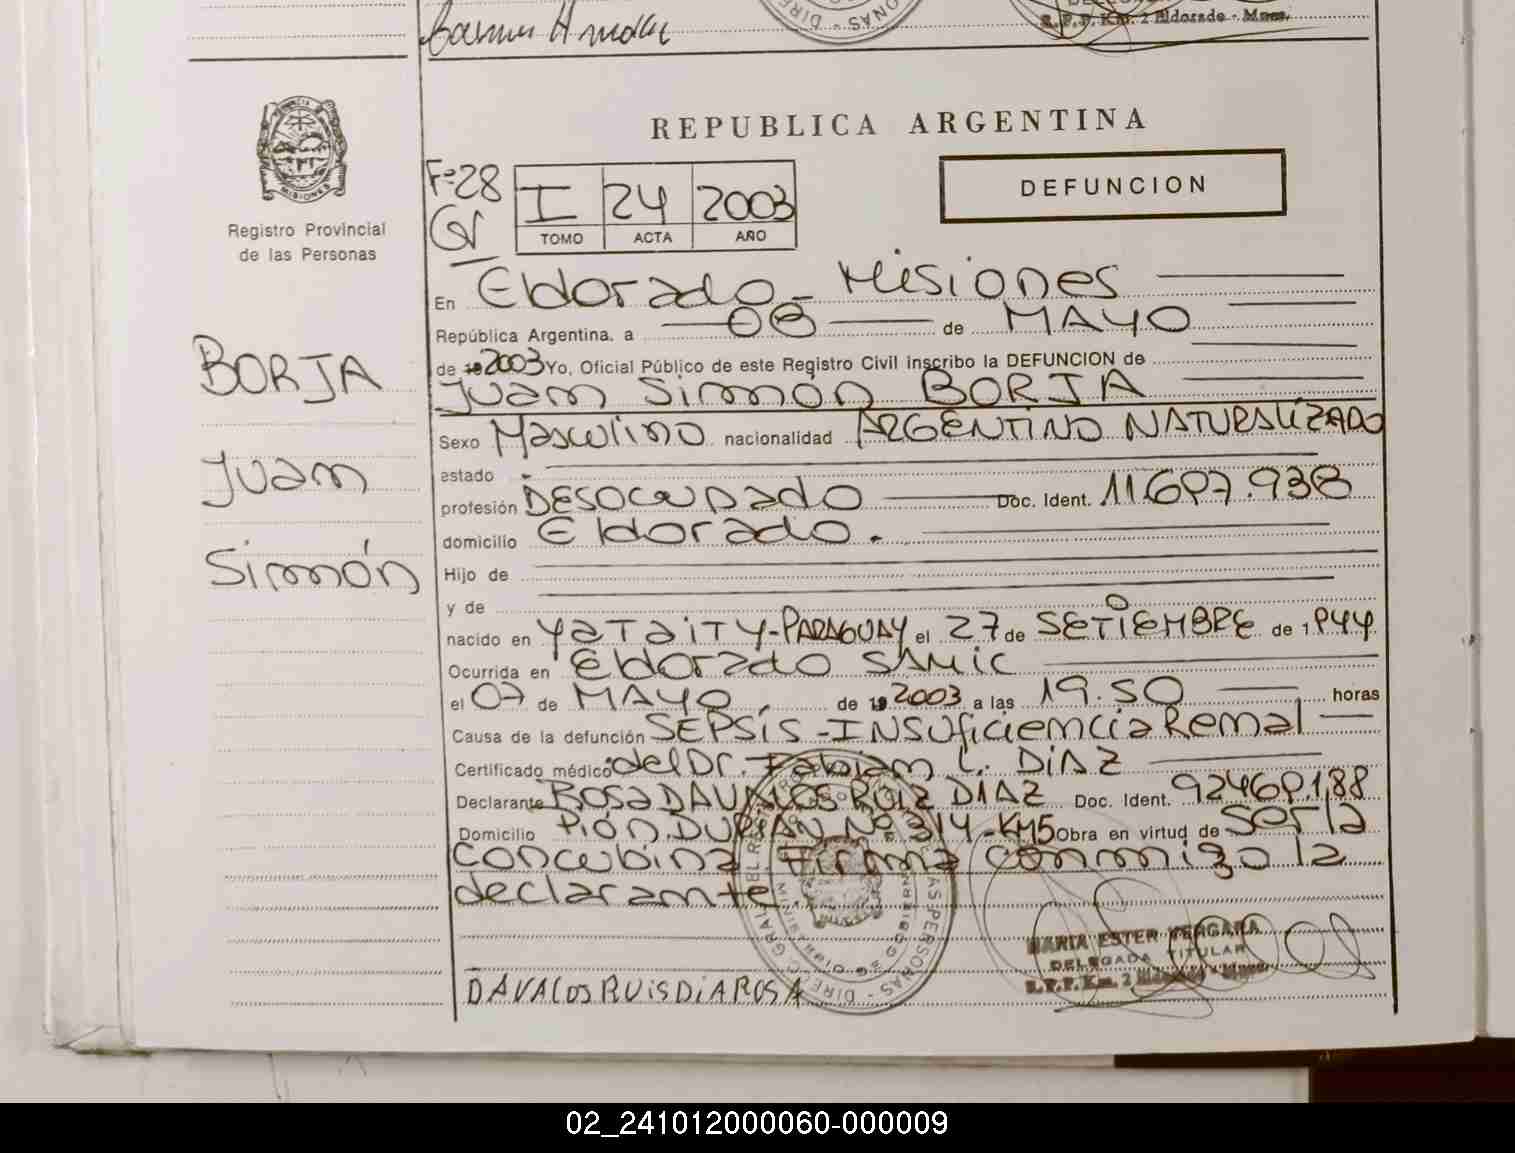 R.P.P. Km. 2 Eldorado - Mnes.
REPUBLICA ARGENTINA
DEFUNCION
Fº 28
I 24 2003
TOMO ACTA AÑO
MISIONES
Registro Provincial
de las Personas
BORJA
Juan
Simón
En Eldorado - Misiones
República Argentina, a 08 de MAYO
de 2003 Yo, Oficial Público de este Registro Civil inscribo la DEFUNCION de
Juan Simón BORJA
Sexo Masculino nacionalidad ARGENTINO NATURALIZADO
estado
profesión DESOCUPADO Doc. Ident. 11.697.938
domicilio Eldorado.
Hijo de
y de
nacido en YATAITY-PARAGUAY el 27 de SETIEMBRE de 1.944
Ocurrida en Eldorado SAMIC
el 07 de MAYO de 2003 a las 19.50 horas
Causa de la defunción SEPSIS - INSUficiencia Renal
Certificado médico del Dr. Fabian L. DIAZ
Declarante Rosa DAVALOS RUIZ DIAZ Doc. Ident. 92469.188
Domicilio Pión. DURIAN Nº 314 - KM5 Obra en virtud de ser la
concubina Firma conmigo la
declarante.
MARIA ESTER VERGARA
DELEGADA TITULAR
R.P.P. Km. 2 Eldorado - Mnes.
DAVALOS RUIS DIA ROSA
02_241012000060-000009